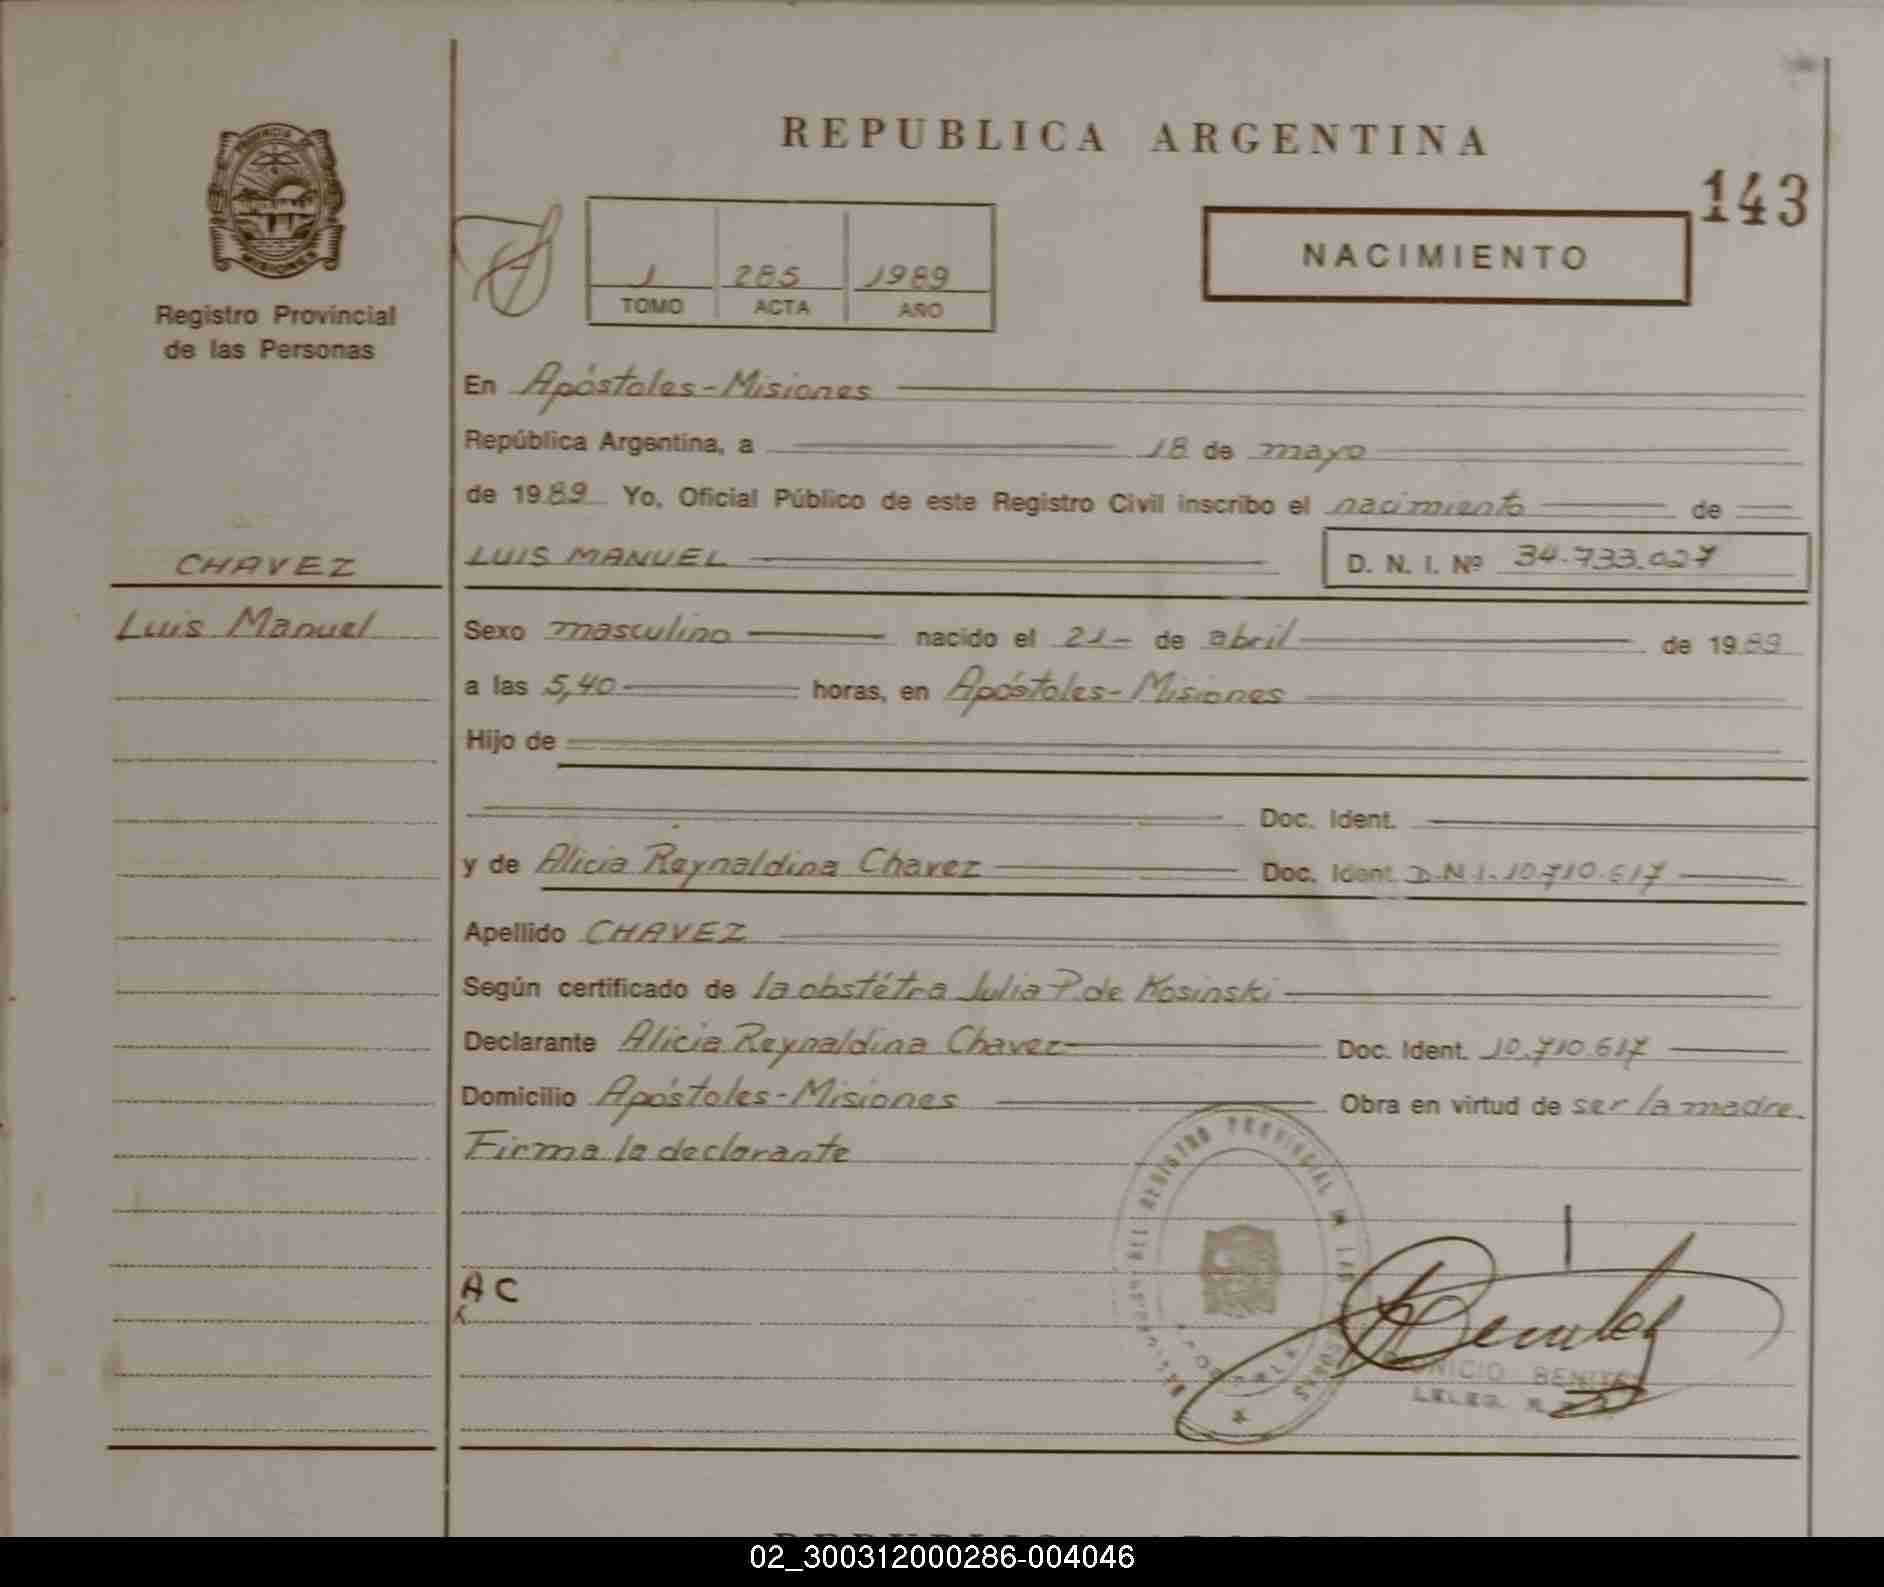 REPUBLICA ARGENTINA
143
PROVINCIA DE
MISIONES
Registro Provincial
de las Personas
1 285 1989
TOMO ACTA AÑO
NACIMIENTO
En Apóstoles-Misiones
República Argentina, a 18 de mayo
de 1989 Yo, Oficial Público de este Registro Civil inscribo el nacimiento de
CHAVEZ
LUIS MANUEL D. N. I. Nº 34.733.027
Luis Manuel
Sexo masculino nacido el 21 de abril de 1989
a las 5,40 horas, en Apóstoles-Misiones
Hijo de
Doc. Ident.
y de Alicia Reynaldina Chavez Doc. Ident. D.N.I. 10.710.617
Apellido CHAVEZ
Según certificado de la obstétra Julia P. de Kosinski
Declarante Alicia Reynaldina Chavez Doc. Ident. 10.710.617
Domicilio Apóstoles-Misiones Obra en virtud de ser la madre.
Firma la declarante
REGISTRO PROVINCIAL DE LAS
A C
BENITEZ
02_300312000286-004046